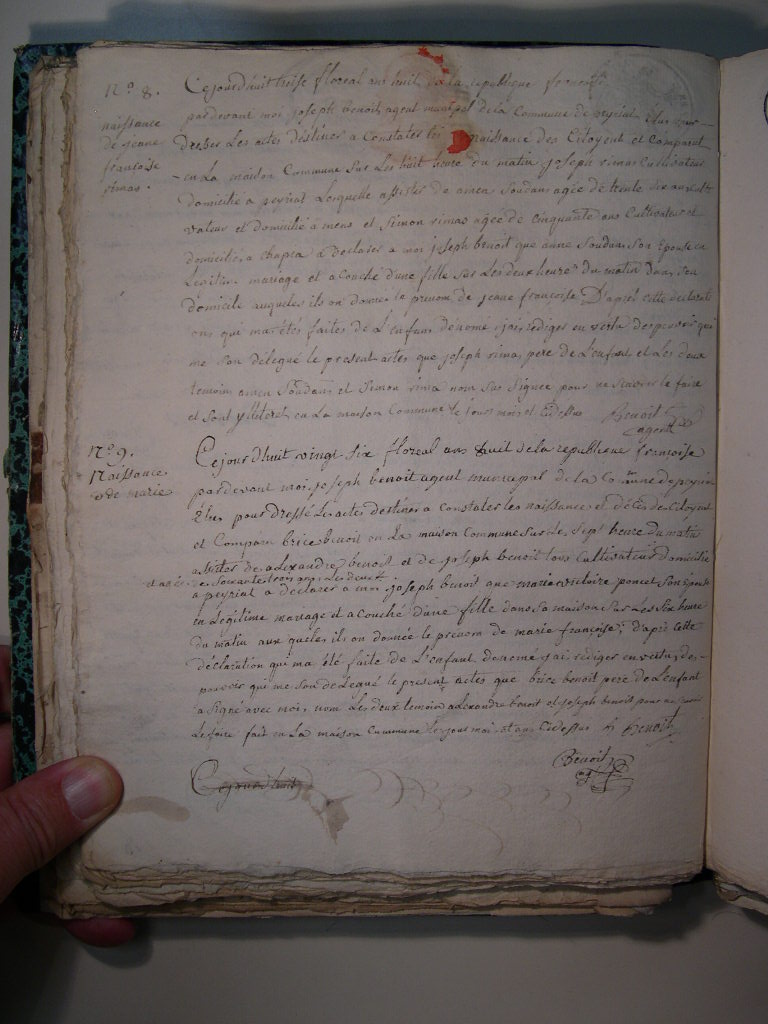 N.º 8.
naissance
de jeane
françoise
rimas.
Ce jourd'huit treise floreal an huit de la republique
par devant moi joseph benoit agent munipal de la Commune de peyriat Elus pour
dresser Les actes destiner a Constater les naissance des Citoyent et Comparut
en La maison Commune sur Les huit heure du matin joseph rimas Cultivateur
domicilie a peyriat Lesquelle assister de amea soudans agée de trente dix ans Culti
vateur et domicilié a mens et Simon rimas agée de cinquante ans Cultivateur et
domiciliés a chapia a Declarer a moi joseph benoit que anne soudans Son Epouse en
Legitim mariage et a couché d'une fille Sur Les deux heure du matin dans sou
domicile auqueles ils on donne le prenom de jeane françoise D'aprés cette declarati
ons qui ma étés faites de L'enfans dénomé jai rediger en vertu des pouvoir qui
me son délegué le present actes que joseph rimas pere de L'enfant et Les deux
temoin amea Soudans et Simon rimas nom sue Signée pour ne Scavoir le faire
en La maison Commune le jours mois et Cidessus Benoit
agent
N.º 9.
Naissance
de marie
Ce jour d'huit vingt Six floreal ans huit de la republique françoise
par devant moi joseph benoit agent municipal de la Comune de peyriat
Elus pour dressé Les actes destiner a Constater les naissance et décés de Citoyens
et Comparu brice benoit en La maison Commune Sur Les Sept heure du matin
assister de alexandre benoit et de joseph benoit tous Cultivateur domicilie
et agée de Soixante trois ans Les deux
a peyriat a déclarer a moi joseph benoit que marie victoire poncet Son Epouse
en Légitime mariage et a couché d'une fille dans Sa maison Sur Les Six heure
du matin aux queles ils on donnée le prenom de marie françoise; d'aprés cette
déclaration qui ma été faite de L'enfant denomé jai rédiger en vertu des
pouvoir qui me Son délequé le present actes que brice benoit pere de L'enfant
a Signé avec moi, nom Les deux temoin alexandre benoit et joseph benoit pour ne savoir
Le faire fait en La maison Commune les jour moi et an Cidessus B Benoit
Benoit
agent
Ce jour d'huit